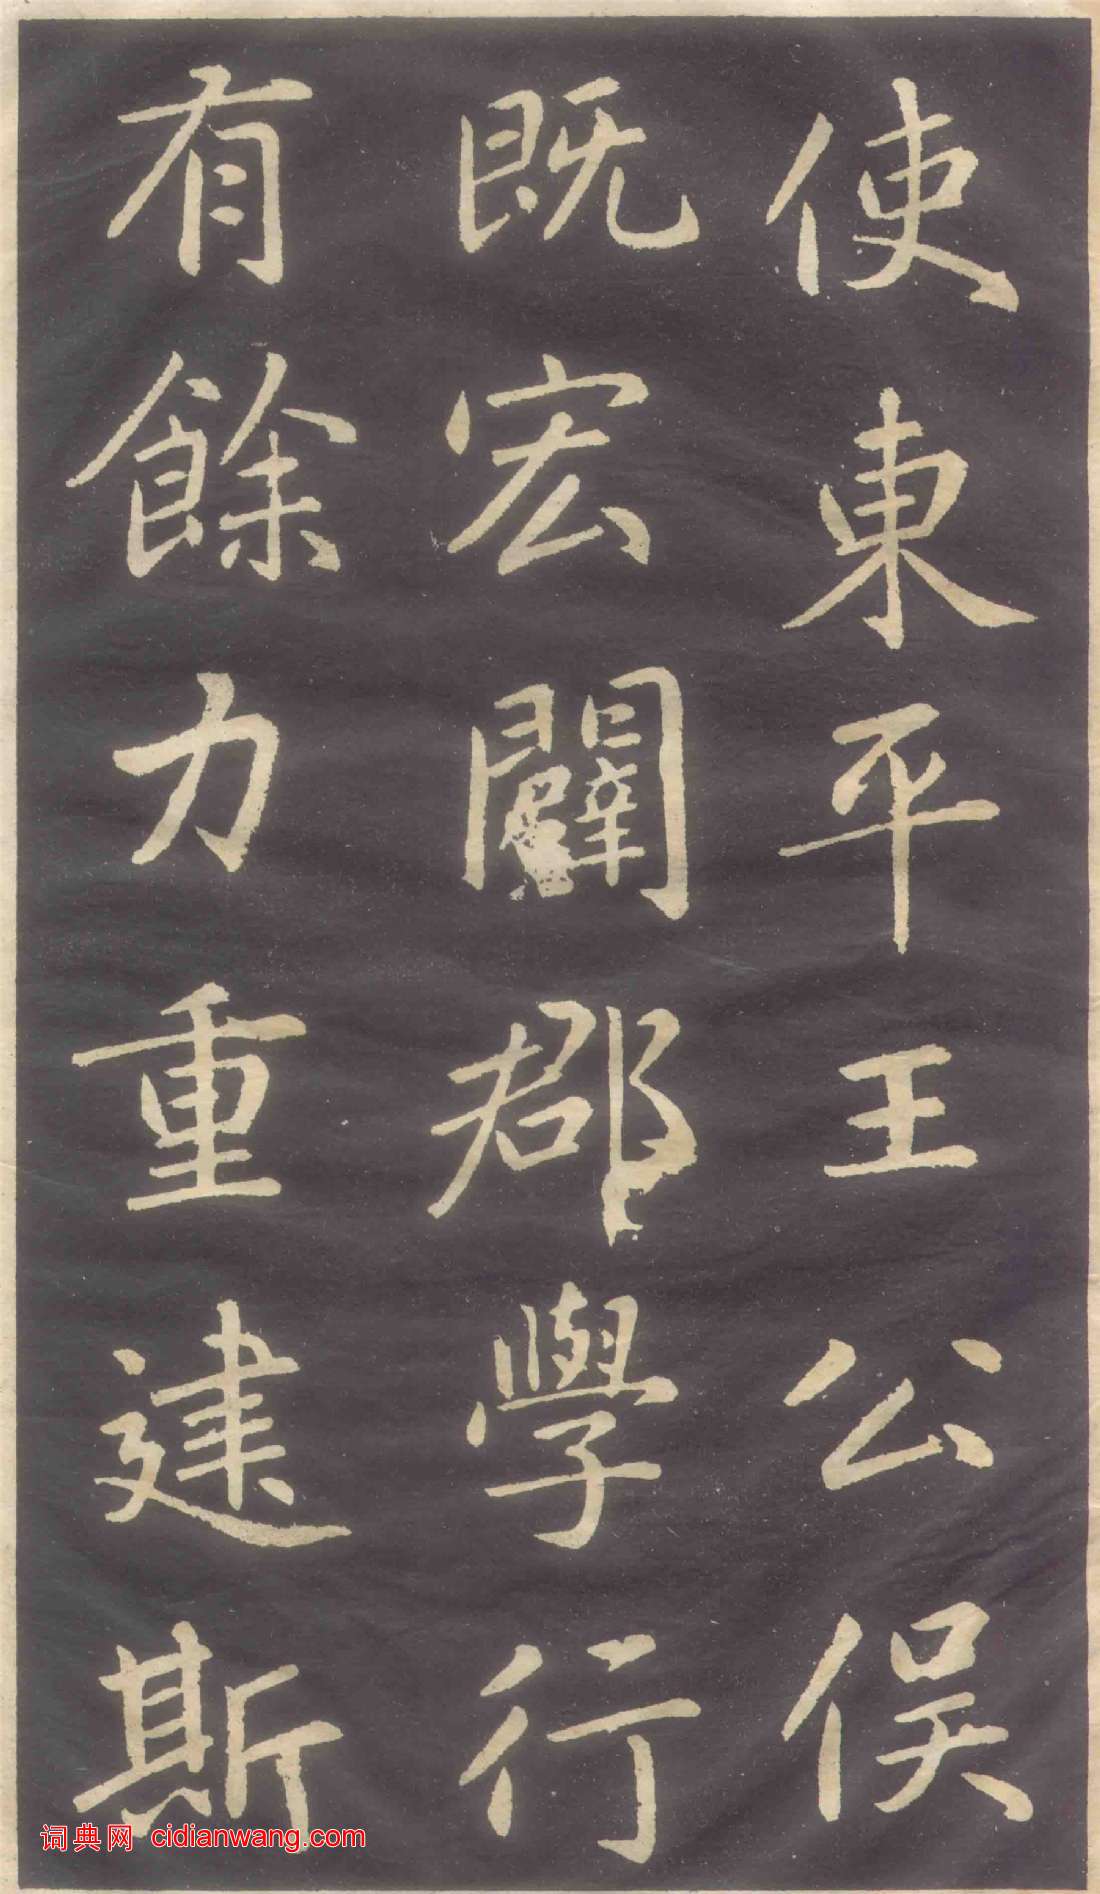 使東平王公俣
既宏闡郡學行
有餘力重建斯
词典网 cidianwang.com